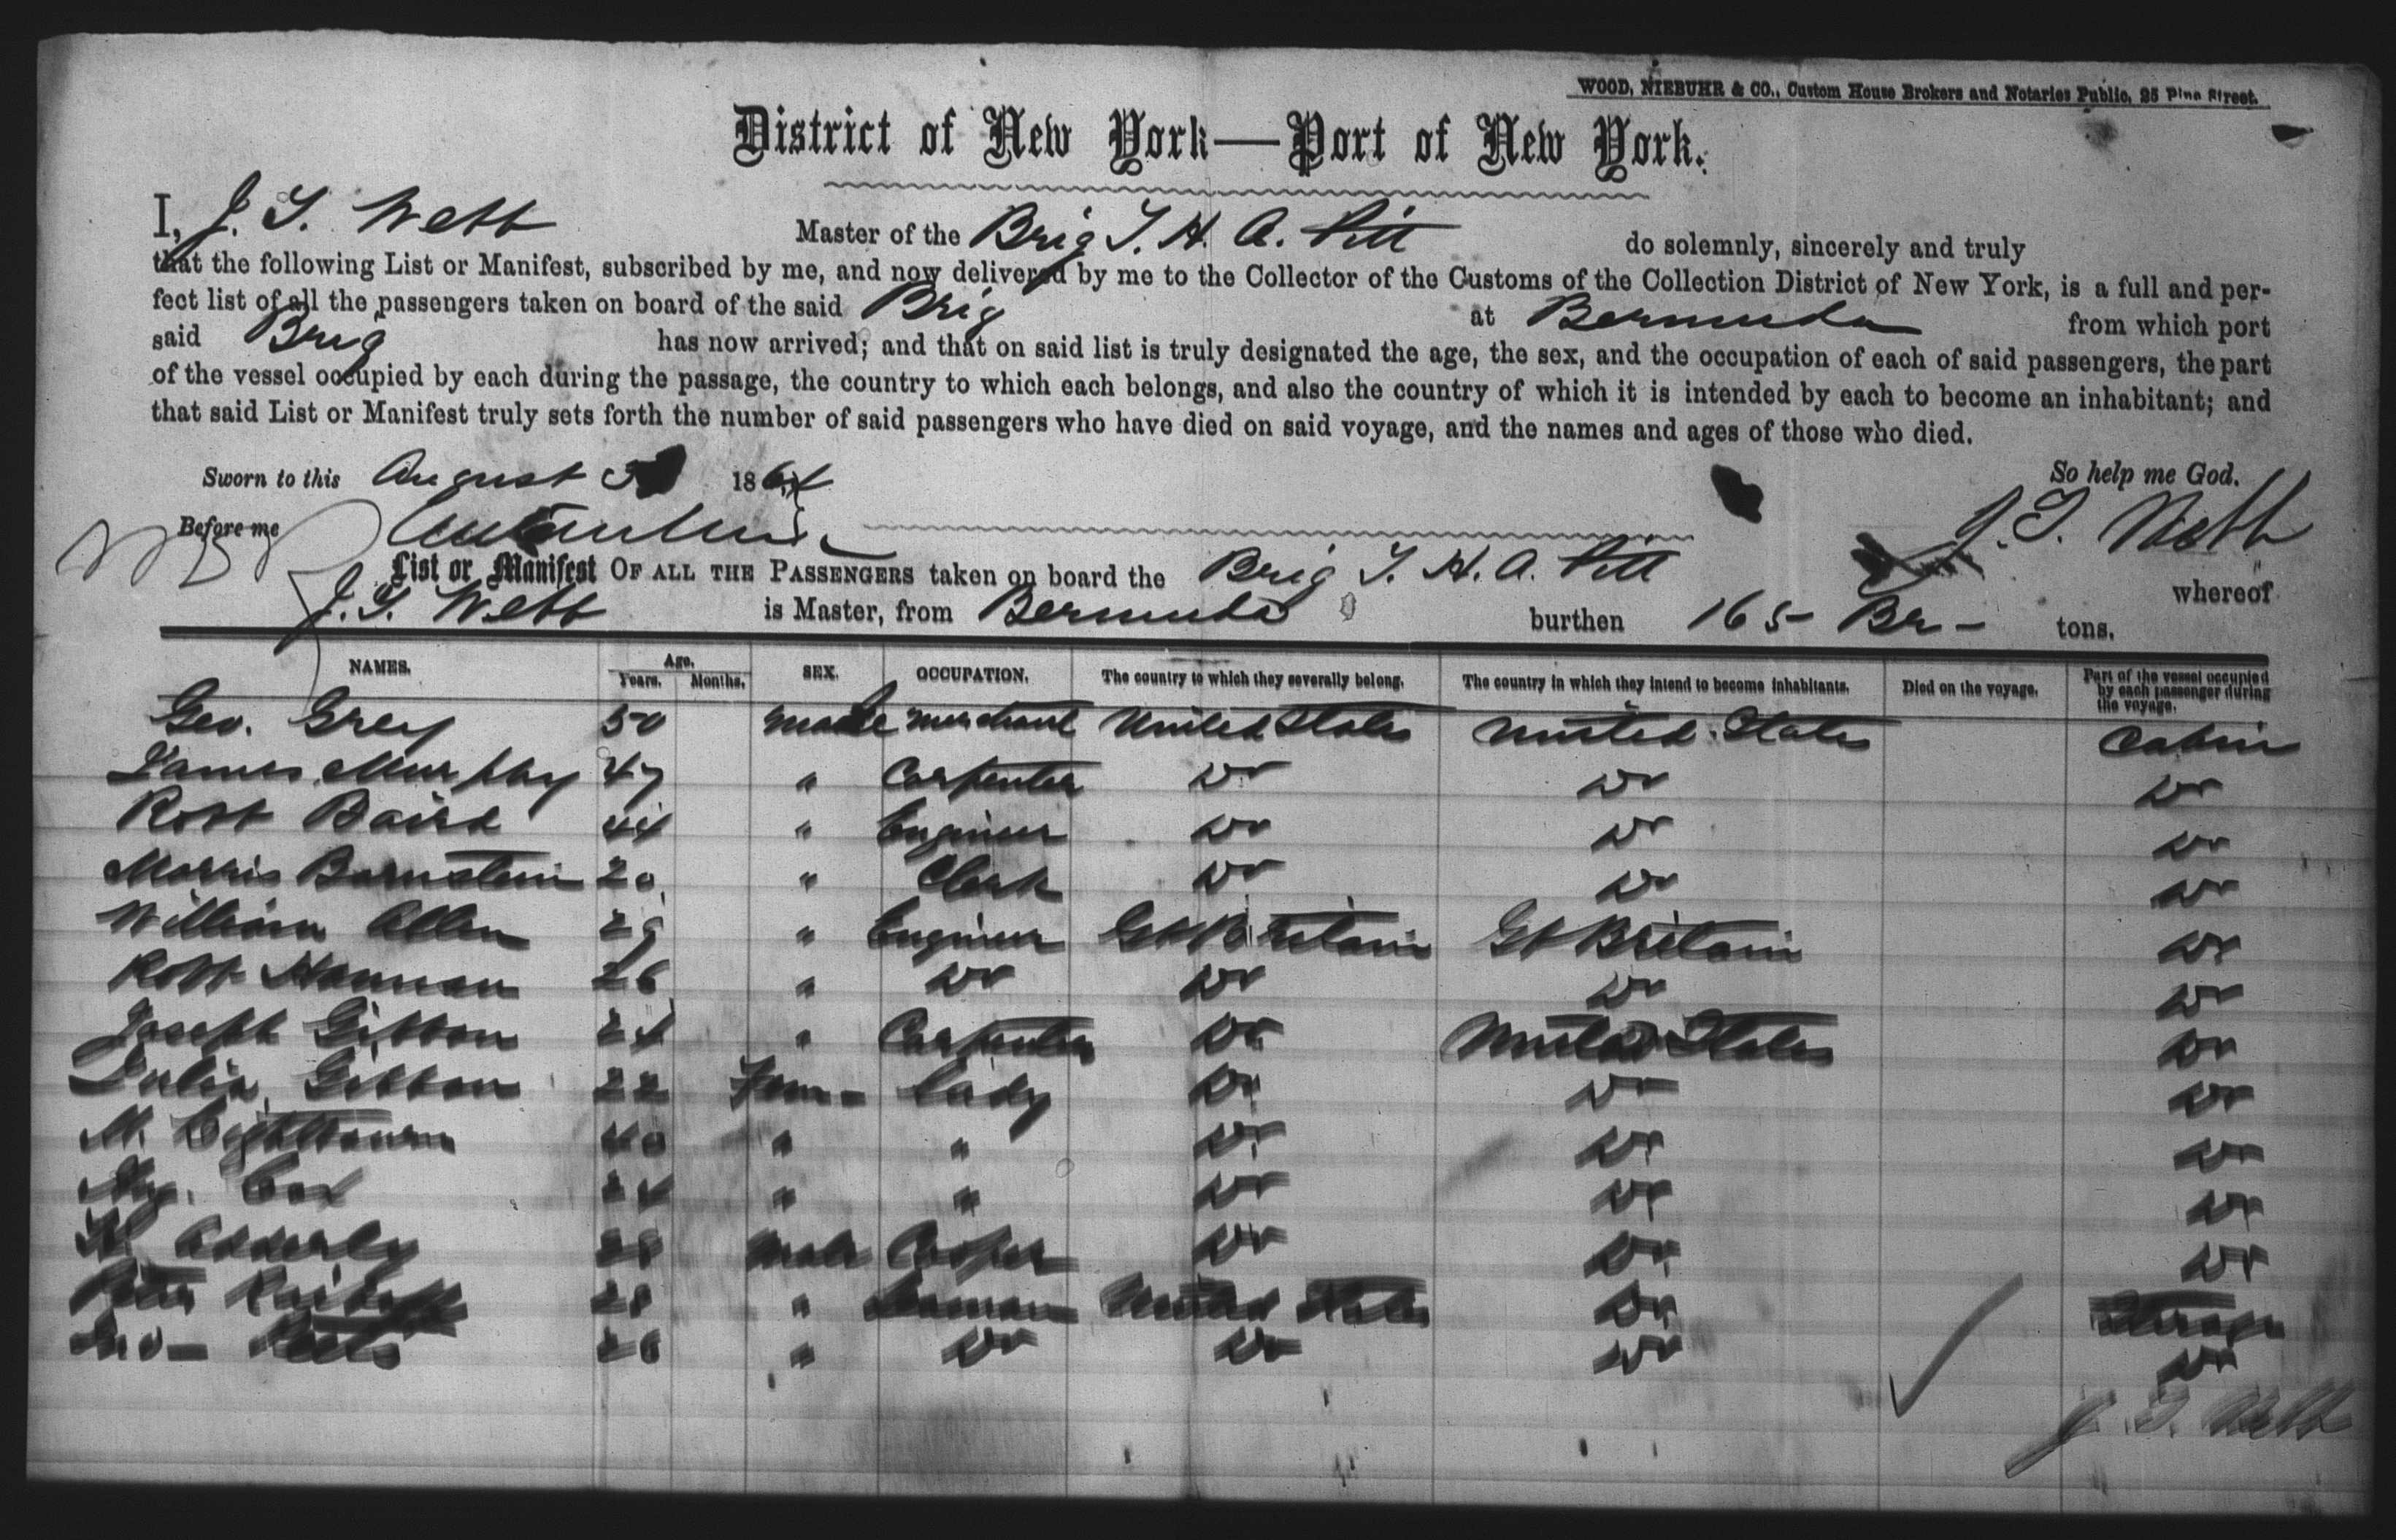 WOOD, NIEBUHR & CO., Custom House Brokers and Notaries Public, 25 Pine Street.
District of New York—Port of New York.
I, J. T. Webb Master of the Brig T. H. A. Pitt do solemnly, sincerely and truly
that the following List or Manifest, subscribed by me, and now delivered by me to the Collector of the Customs of the Collection District of New York, is a full and per-
fect list of all the passengers taken on board of the said Brig at Bermuda from which port
said Brig has now arrived; and that on said list is truly designated the age, the sex, and the occupation of each of said passengers, the part
of the vessel occupied by each during the passage, the country to which each belongs, and also the country of which it is intended by each to become an inhabitant; and
that said List or Manifest truly sets forth the number of said passengers who have died on said voyage, and the names and ages of those who died.
Sworn to this August 1864 So help me God.
Before me J. T. Webb
List or Manifest OF ALL THE PASSENGERS taken on board the Brig T. H. A. Pitt whereof
J. T. Webb is Master, from Bermuda burthen 165 Br - tons.
NAMES. Age. Years. Months. SEX. OCCUPATION. The country to which they severally belong. The country in which they intend to become inhabitants. Died on the voyage. Part of the vessel occupied by each passenger during the voyage.
Geo. Grey 50 male merchant United States United States Cabin
James Murphy 47 " Carpenter Do Do Do
Robt Baird 44 " Engineer Do Do Do
Morris Bornstein 20 " Clerk Do Do Do
William Allen 29 " Engineer Gt Britain Gt Britain Do
Robt Hannan 26 " Do Do Do Do
Joseph Gibbon 24 " Carpenter Do United States Do
Julia Gibbon 22 Fem - Lady Do Do Do
M. 40 " " Do Do Do
Cox 24 " " Do Do Do
Adderley 28 male Cooper Do Do Do
Peter 28 " Seaman United States Do Steerage
26 " Do Do Do Do
J. T. Webb